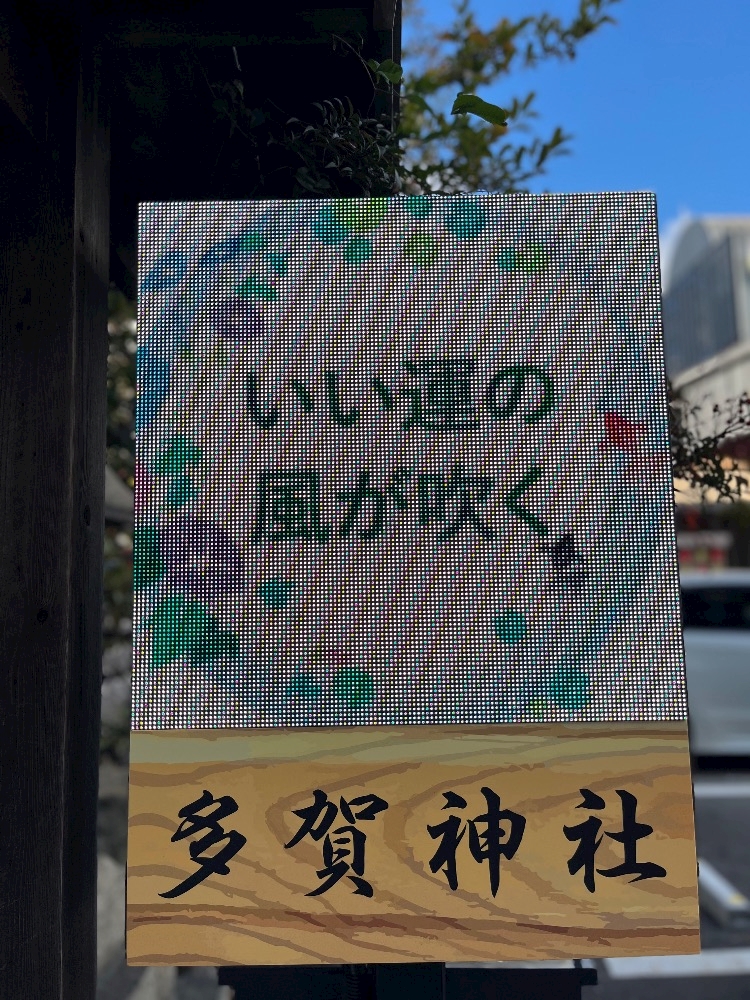 いい運の
風が吹く
多賀神社